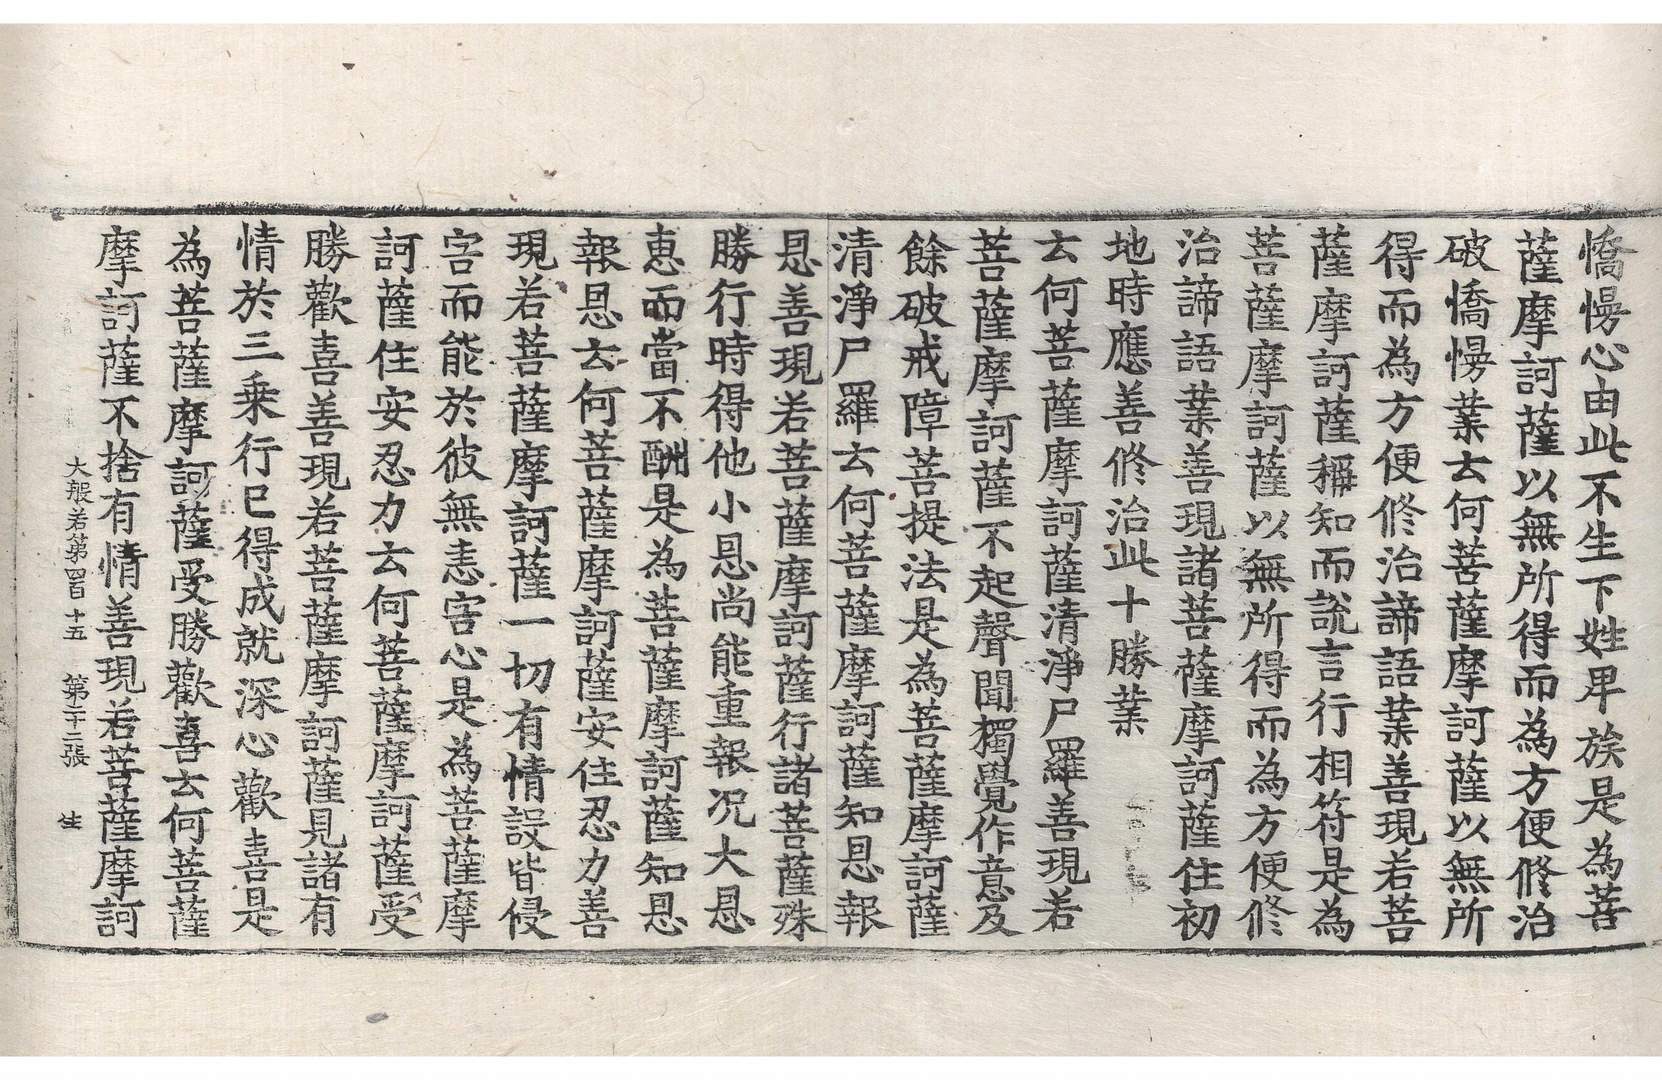 憍慢心由此不生下姓卑族是為菩
薩摩訶薩以無所得而為方便修治
破憍慢業云何菩薩摩訶薩以無所
得而為方便修治諦語業善現若菩
薩摩訶薩稱知而說言行相符是為
菩薩摩訶薩以無所得而為方便修
治諦語業善現諸菩薩摩訶薩住初
地時應善修治此十勝業
云何菩薩摩訶薩清淨尸羅善現若
菩薩摩訶薩不起聲聞獨覺作意及
餘破戒障菩提法是為菩薩摩訶薩
清淨尸羅云何菩薩摩訶薩知恩報
恩善現若菩薩摩訶薩行諸菩薩殊
勝行時得他小恩尚能重報況大恩
惠而當不酬是為菩薩摩訶薩知恩
報恩云何菩薩摩訶薩安住忍力善
現若菩薩摩訶薩一切有情設皆侵
害而能於彼無恚害心是為菩薩摩
訶薩住安忍力云何菩薩摩訶薩受
勝歡喜善現若菩薩摩訶薩見諸有
情於三乘行已得成就深心歡喜是
為菩薩摩訶薩受勝歡喜云何菩薩
摩訶薩不捨有情善現若菩薩摩訶
大般若第四百十五 第二十二張 生